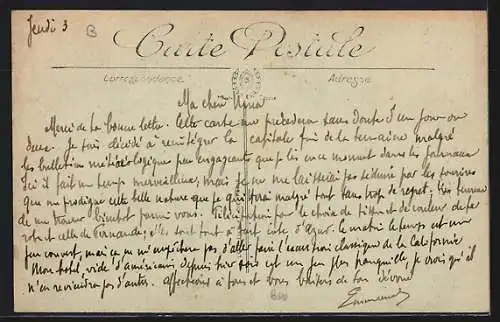 Jeudi 3
B
Carte Postale
Correspondance
Adresse
Ma chère
Merci de ta bonne lettre. Cette carte me précédera sans doute d'un jour ou
deux. Je suis décidé à réintégrer la capitale fin de semaine malgré
les bulletins météorologiques peu engageants que je lis en ce moment dans les journaux
Ici il fait un temps merveilleux, mais je ne me laisserai pas séduire par les sourires
que me prodigue cette belle nature que je quitterai malgré tout sans trop de regret. Très heureux
de me trouver bientôt parmi vous. pour le choix de et de couleur de ta
robe et celle de Fernande, elles sont tout à fait côte d'azur. Ce matin le temps est un
peu couvert, mais ça ne m'empêchera pas d'aller faire l'excursion classique de la Californie
Mon hôtel, vidé d'américains depuis hier soir est un peu plus tranquille, je crois qu'il
n'en reviendra pas d'autres. Affections à tous et bons baisers de ton dévoué